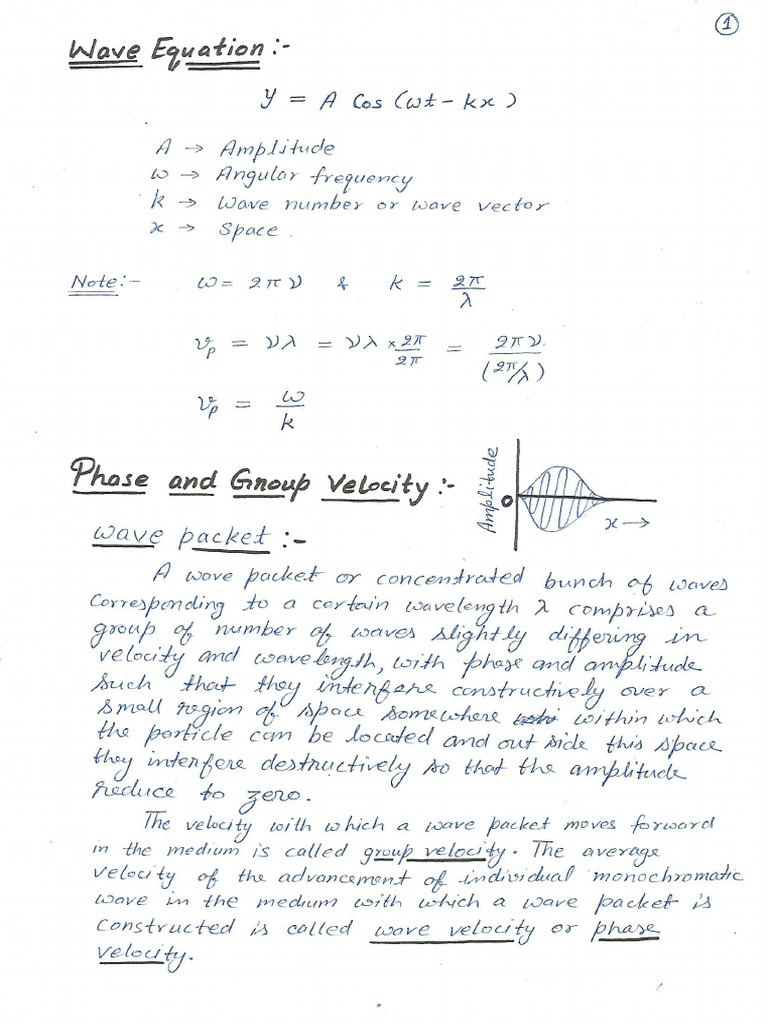 1
Wave Equation :-
y = A Cos (ωt - kx)
A → Amplitude
ω → Angular frequency
k → Wave number or wave vector
x → Space.
Note :- ω = 2πν & k = 2π/λ
v_p = νλ = νλ × 2π/2π = 2πν/(2π/λ)
v_p = ω/k
Phase and Group Velocity :-
Amplitude
O
x →
Wave packet :-
A wave packet or concentrated bunch of waves
corresponding to a certain wavelength λ comprises a
group of number of waves slightly differing in
velocity and wavelength, with phase and amplitude
such that they interfere constructively over a
small region of space somewhere within which
the particle can be located and out side this space
they interfere destructively so that the amplitude
reduce to zero.
The velocity with which a wave packet moves forward
in the medium is called group velocity. The average
velocity of the advancement of individual monochromatic
wave in the medium with which a wave packet is
constructed is called wave velocity or phase
velocity.